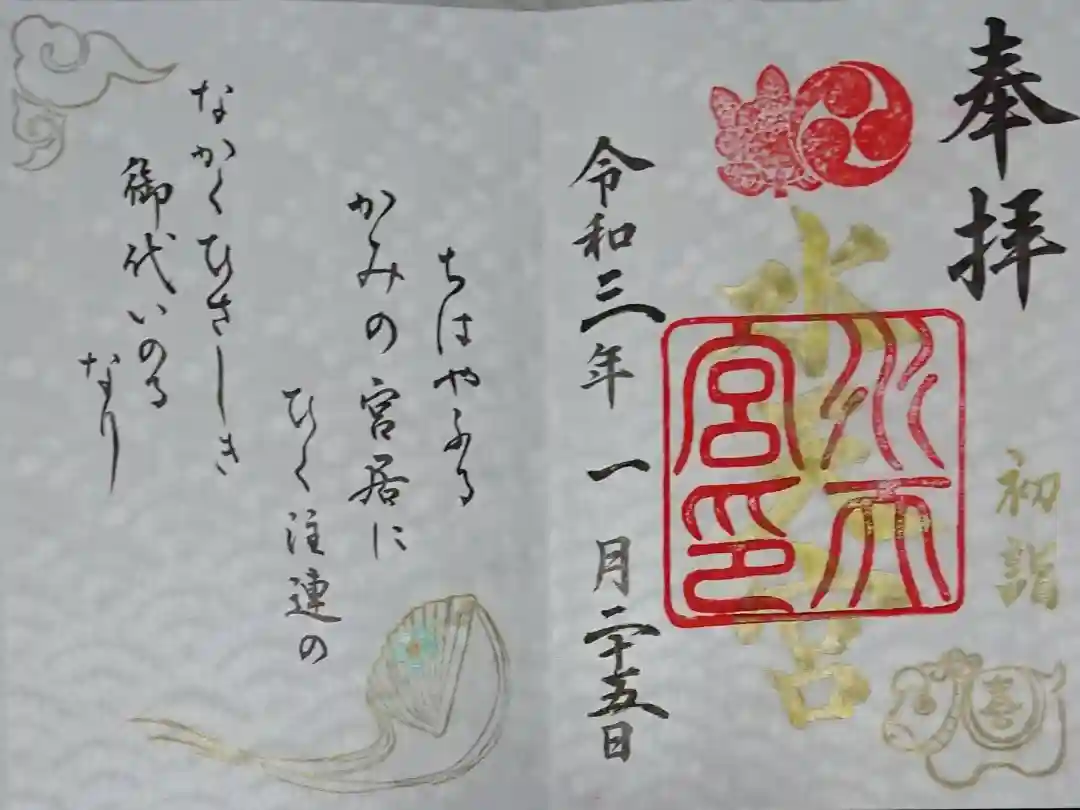 奉拝
初詣
水天宮
水天
宮印
喜
令和三年一月二十五日
ちはやふる
かみの宮居に
ひく注連の
なかくひさしき
御代いのる
なり